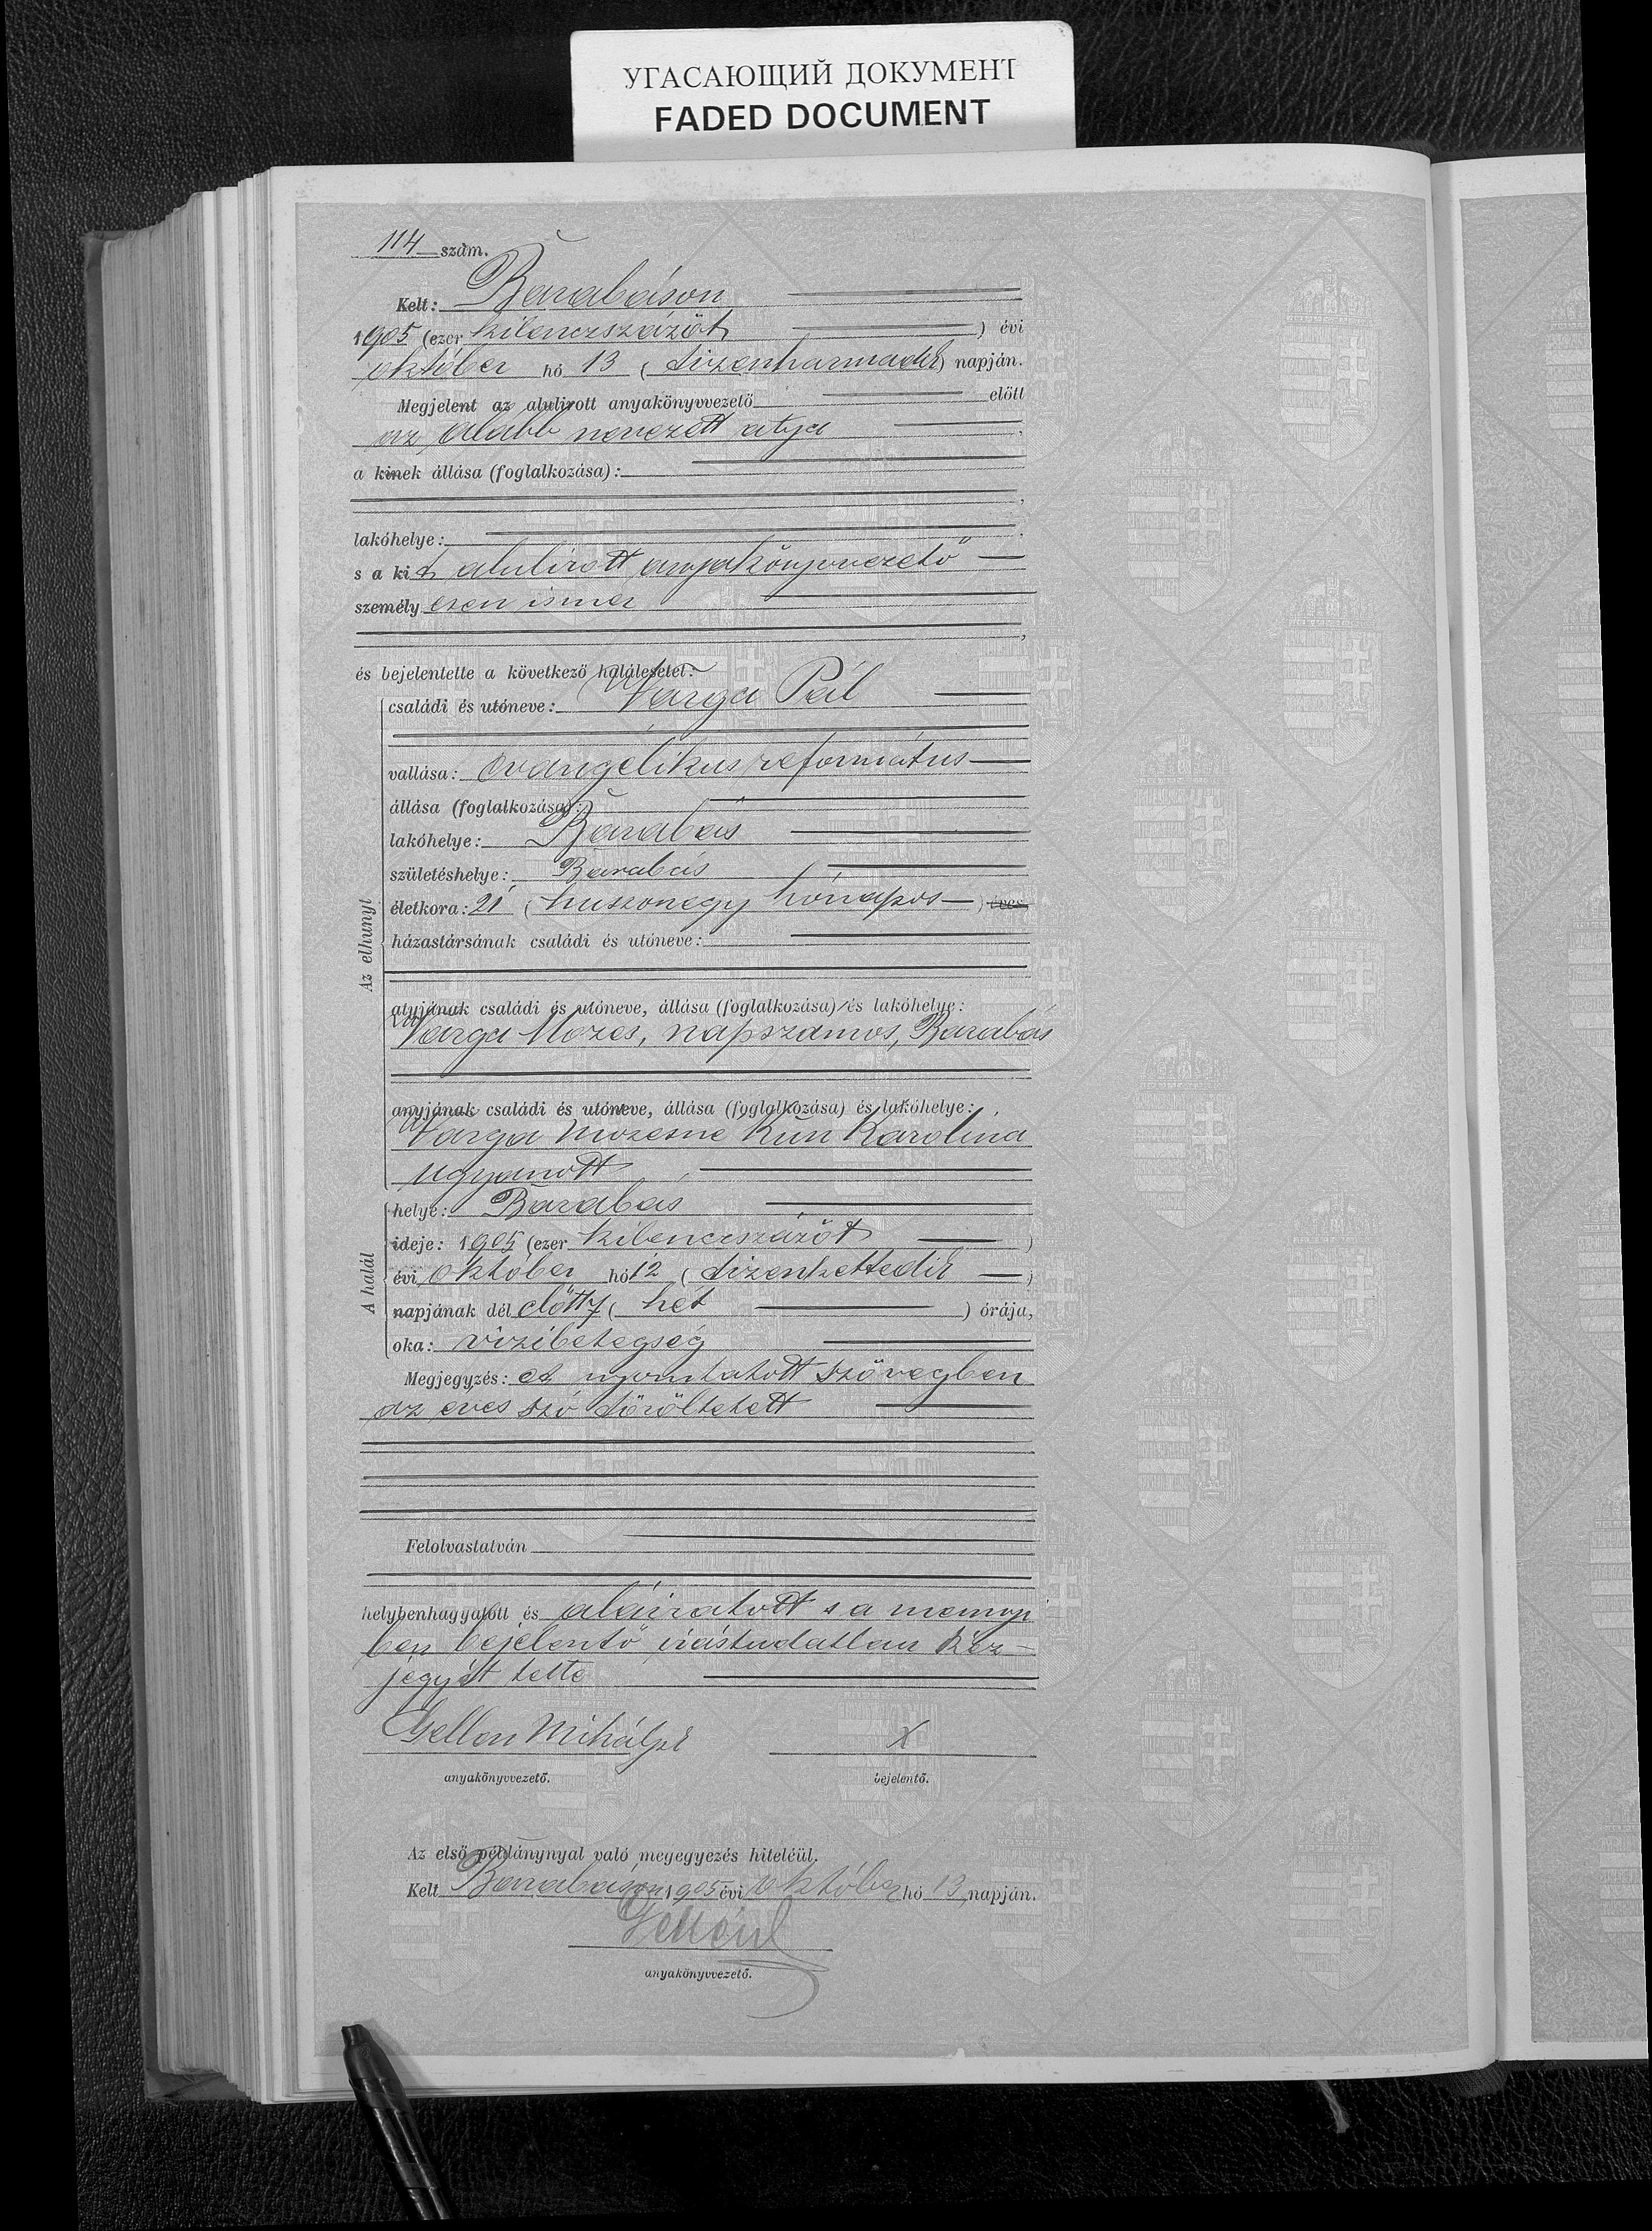 УГАСАЮЩИЙ ДОКУМЕНТ
FADED DOCUMENT
114 szám.
Kelt: Barabáson
1905 (ezer kilenczszázöt) évi
október hó 13 (tizenharmadik) napján.
Megjelent az alulirott anyakönyvvezető előtt
az alább nevezett atya,
a kinek állása (foglalkozása):
lakóhelye:
s a kit alulirott anyakönyvvezető
személyesen ismer
és bejelentette a következő halálesetet:
Az elhunyt
családi és utóneve: Varga Pál
vallása: evangélikus református
állása (foglalkozása):
lakóhelye: Barabás
születéshelye: Barabás
életkora: 21 (huszonegy hónapos) éves
házastársának családi és utóneve:
atyjának családi és utóneve, állása (foglalkozása) és lakóhelye:
Varga Mózes, napszámos, Barabás
anyjának családi és utóneve, állása (foglalkozása) és lakóhelye:
Varga Mózesné Kun Karolina
ugyanott
A halál
helye: Barabás
ideje: 1905 (ezer kilenczszázöt)
évi október hó 12 (tizenkettedik)
napjának dél előtt 7 (hét) órája,
oka: vizibetegség
Megjegyzés: A nyomtatott szövegben
az éves szó töröltetett
Felolvastatván
helybenhagyatott és aláiratott s a mennyi
ben bejelentő irástudatlan kéz-
jegyét tette
Gellén Mihály
x
anyakönyvvezető.
bejelentő.
Az első példánynyal való megegyezés hiteléül.
Kelt Barabáson 1905 évi október hó 13 napján.
anyakönyvvezető.